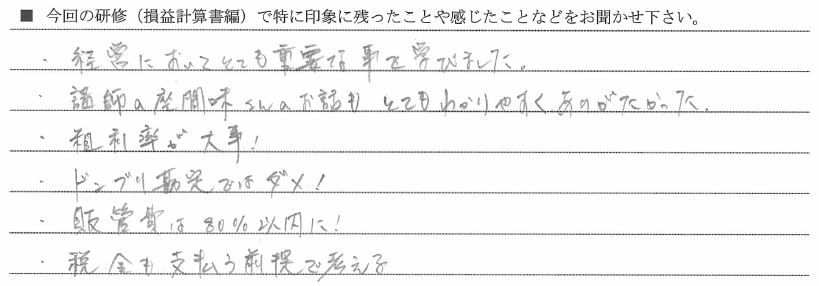 ■ 今回の研修（損益計算書編）で特に印象に残ったことや感じたことなどをお聞かせ下さい。
・ 経営においてとても重要な事を学びました。
・ 講師の座間味さんのお話も とてもわかりやすくありがたかった。
・ 粗利率が大事！
・ ドンブリ勘定ではダメ！
・ 販管費は80%以内に！
・ 税金も支払う前提で考える